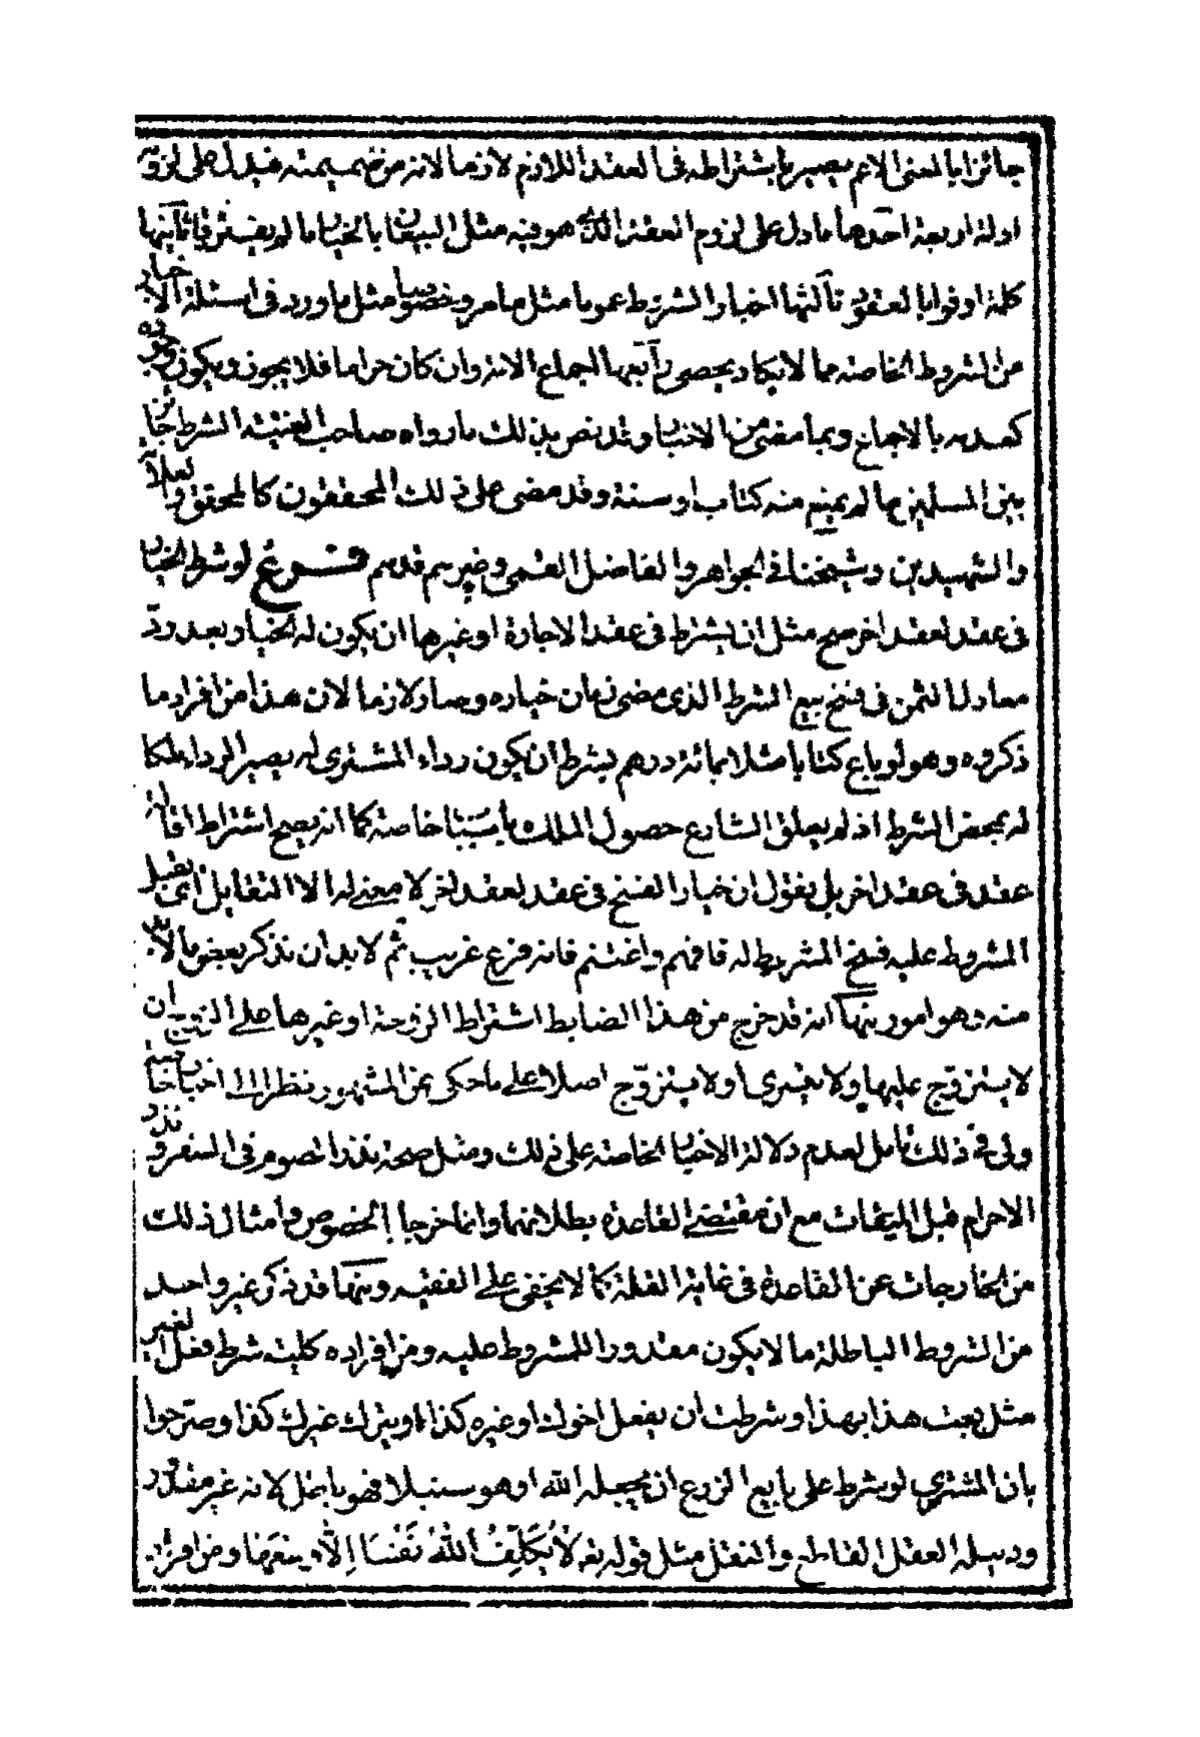 جائزا بالمعنى الاعم يصير باشتراطه فى العقد اللازم لازما لانه من ضميمته فيدل على لزومه
ادلة اربعة احدها ما دل على لزوم العقد الذى هو فيه مثل البيعان بالخيار ما لم يفترقا ثانيها
كلمة اوفوا بالعقود ثالثها اخبار الشرط عموما مثل ما مر وخصوصا مثل ما ورد فى اسئلة الاخبار
من الشروط الخاصة مما لا يكاد يحصى رابعها اجماع الامة وان كان حراما فلا يجوز ويكون وجوده
كعدمه بالاجماع وبما مضى من الاخبار وقد نص بذلك ما رواه صاحب الغنية الشرط جائز
بين المسلمين ما لم يمنع منه كتاب او سنة وقد مضى على ذلك المحققون كالمحقق والعلامة
والشهيدين وشيخنا فى الجواهر والفاضل القمى وغيرهم قدهم فرع لو شرط الخيار
فى عقد لعقد اخر صح مثل ان يشترط فى عقد الاجارة او غيرها ان يكون له الخيار بعد رد
معادل الثمن فى فسخ بيع الشرط الذى مضى زمان خياره وصار لازما لان هذا من افراد ما
ذكروه وهو لو باع كتابا مثلا بمائة درهم بشرط ان يكون رداء المشترى له يصير الرداء ملكا
له بمحض الشرط اذ لم يعلق الشارع حصول الملك باسبابا خاصة كما انه يصح اشتراط اقالة
عقد فى عقد اخر بل يقول ان خيار الفسخ فى عقد لعقد اخر لا معنى له الا التقايل اى يقبل
المشروط عليه فسخ المشروط له فافهم واغتنم فانه فرع غريب ثم لا بد ان نذكر بعض ما لا بد
منه وهو امور منها انه قد خرج من هذا الضابط اشتراط الزوجة او غيرها على الزوج ان
لا يتزوج عليها ولا يتسرى او لا يتزوج اصلا على ما حكى عن المشهور نظرا الى اخبار خاصة
ولى فى ذلك تامل لعدم دلالة الاخبار الخاصة على ذلك ومثل صحة نذر الصوم فى السفر ونذر
الاحرام قبل الميقات مع ان مقتضى القاعدة بطلانهما وانما خرجا بالخصوص وامثال ذلك
من الخارجات عن القاعدة فى غاية القلة كما لا يخفى على الفقيه ومنها قد ذكر غير واحد
من الشروط الباطلة ما لا يكون مقدورا للمشروط عليه ومن افراده كلية شرط فعل الغير
مثل بعت هذا بهذا وشرطت ان يفعل اخوك او غيره كذا او يترك غيرك كذا وصرحوا
بان المشترى لو شرط على بايع الزرع ان يجعله الله او هو سنبلا فهو باطل لانه غير مقدور
ودليله العقل القاطع والنقل مثل قوله تع لا يكلف الله نفسا الا وسعها ومن افراد